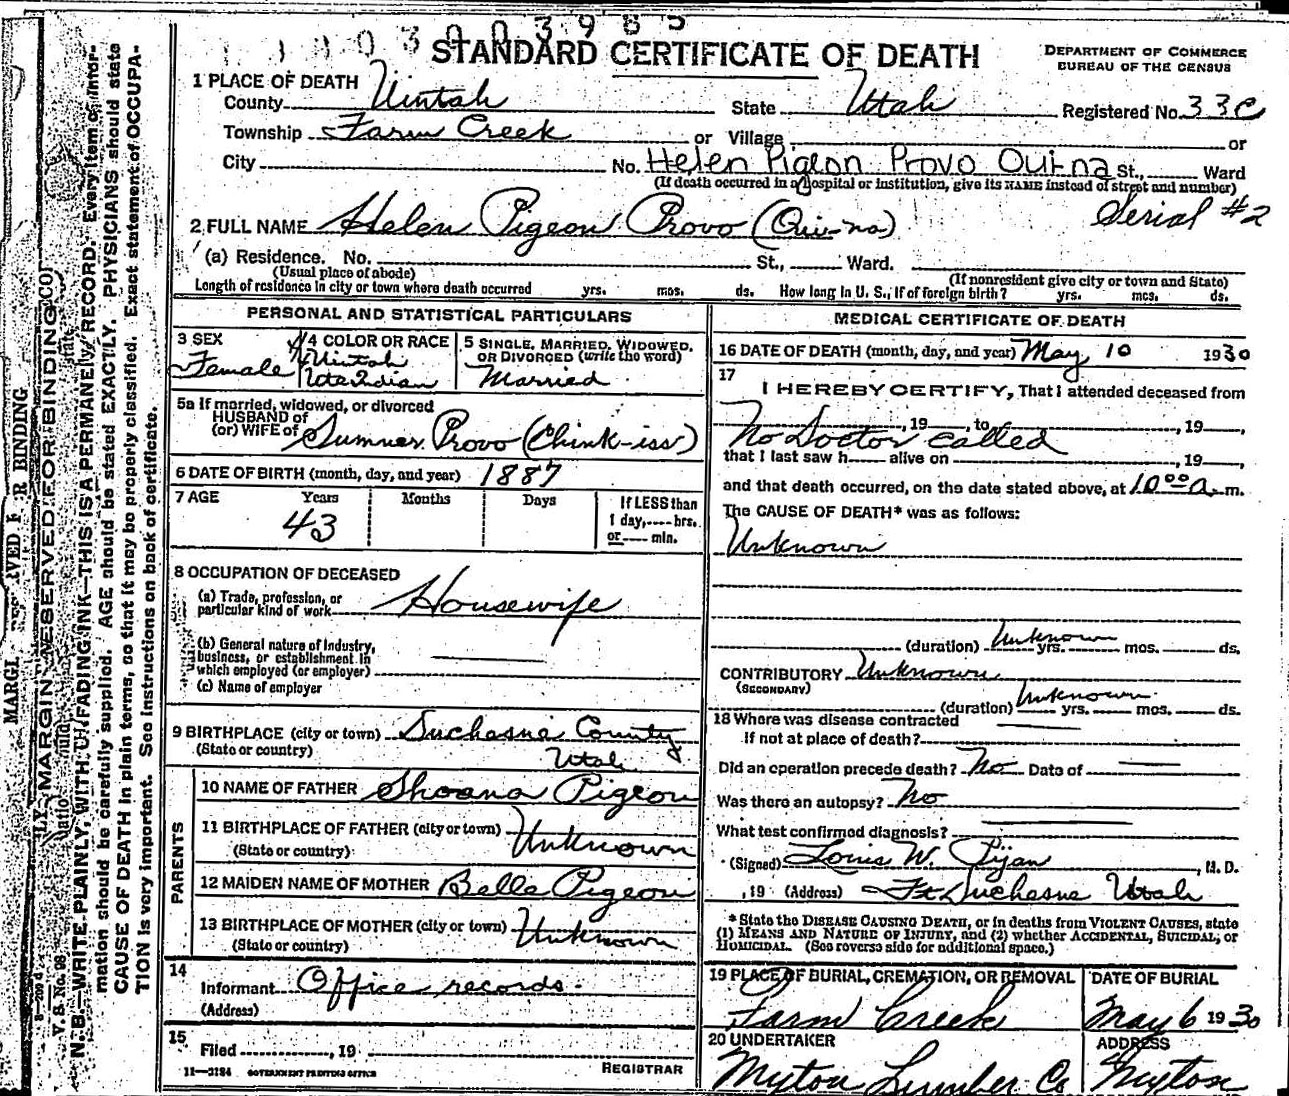 STANDARD CERTIFICATE OF DEATH
DEPARTMENT OF COMMERCE
BUREAU OF THE CENSUS
1 PLACE OF DEATH
County Uintah State Utah Registered No. 33c
Township Farm Creek or Village or
City No. Helen Pigeon Provo Qui-na St., Ward
(If death occurred in a hospital or institution, give its NAME instead of street and number)
Serial #2
2 FULL NAME Helen Pigeon Provo (Qui-na)
(a) Residence. No. St., Ward.
(Usual place of abode) (If nonresident give city or town and State)
Length of residence in city or town where death occurred yrs. mos. ds. How long in U. S., if of foreign birth? yrs. mos. ds.
PERSONAL AND STATISTICAL PARTICULARS
3 SEX
Female
4 COLOR OR RACE
Uintah
Ute Indian
5 SINGLE, MARRIED, WIDOWED,
OR DIVORCED (write the word)
Married
5a If married, widowed, or divorced
HUSBAND of
(or) WIFE of Sumner Provo (Chink-iss)
6 DATE OF BIRTH (month, day, and year) 1887
7 AGE Years Months Days If LESS than
1 day, hrs.
or min.
43
8 OCCUPATION OF DECEASED
(a) Trade, profession, or
particular kind of work Housewife
(b) General nature of industry,
business, or establishment in
which employed (or employer)
(c) Name of employer
9 BIRTHPLACE (city or town) Duchesne County
(State or country) Utah
PARENTS
10 NAME OF FATHER Shoana Pigeon
11 BIRTHPLACE OF FATHER (city or town) Unknown
(State or country)
12 MAIDEN NAME OF MOTHER Belle Pigeon
13 BIRTHPLACE OF MOTHER (city or town) Unknown
(State or country)
14
Informant Office records.
(Address)
15
Filed , 19
REGISTRAR
11—3184 GOVERNMENT PRINTING OFFICE
MEDICAL CERTIFICATE OF DEATH
16 DATE OF DEATH (month, day, and year) May 10 1930
17
I HEREBY CERTIFY, That I attended deceased from
, 19 , to , 19 ,
No Doctor called
that I last saw h alive on , 19 ,
and that death occurred, on the date stated above, at 10 00 a. m.
The CAUSE OF DEATH* was as follows:
Unknown
(duration) Unknown yrs. mos. ds.
CONTRIBUTORY Unknown
(SECONDARY)
(duration) Unknown yrs. mos. ds.
18 Where was disease contracted
if not at place of death?
Did an operation precede death? No Date of
Was there an autopsy? No
What test confirmed diagnosis?
(Signed) Louis W. Pijan, M. D.
, 19 (Address) Ft Duchesne Utah
* State the DISEASE CAUSING DEATH, or in deaths from VIOLENT CAUSES, state
(1) MEANS AND NATURE OF INJURY, and (2) whether ACCIDENTAL, SUICIDAL, or
HOMICIDAL. (See reverse side for additional space.)
19 PLACE OF BURIAL, CREMATION, OR REMOVAL
Farm Creek
DATE OF BURIAL
May 6 1930
20 UNDERTAKER
Myton Lumber Co
ADDRESS
Myton
MARGIN RESERVED FOR BINDING
V. S. No. 98
N. B.—WRITE PLAINLY, WITH UNFADING INK—THIS IS A PERMANENT RECORD. Every item of infor-
mation should be carefully supplied. AGE should be stated EXACTLY. PHYSICIANS should state
CAUSE OF DEATH in plain terms, so that it may be properly classified. Exact statement of OCCUPA-
TION is very important. See instructions on back of certificate.